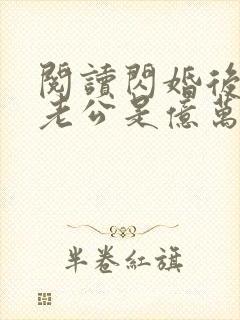 閱讀閃婚後
老公是億萬
半卷紅旗